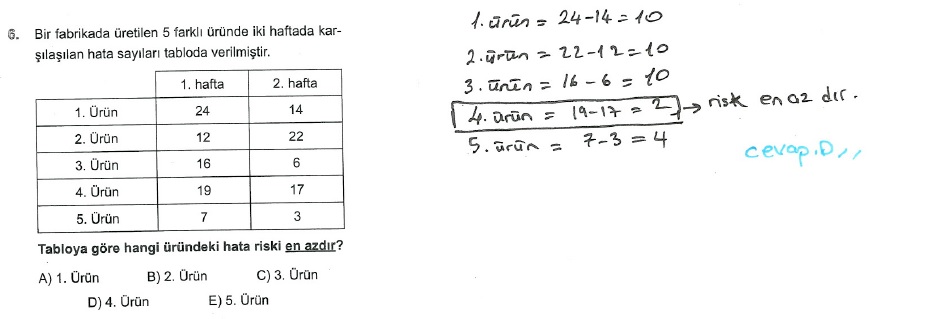 6. Bir fabrikada üretilen 5 farklı üründe iki haftada kar-
şılaşılan hata sayıları tabloda verilmiştir.
1. hafta 2. hafta
1. Ürün 24 14
2. Ürün 12 22
3. Ürün 16 6
4. Ürün 19 17
5. Ürün 7 3
Tabloya göre hangi üründeki hata riski en azdır?
A) 1. Ürün B) 2. Ürün C) 3. Ürün
D) 4. Ürün E) 5. Ürün
1. ürün = 24-14 = 10
2. ürün = 22-12 = 10
3. ürün = 16-6 = 10
4. ürün = 19-17 = 2 → risk en az dır.
5. ürün = 7-3 = 4
cevap.D,,